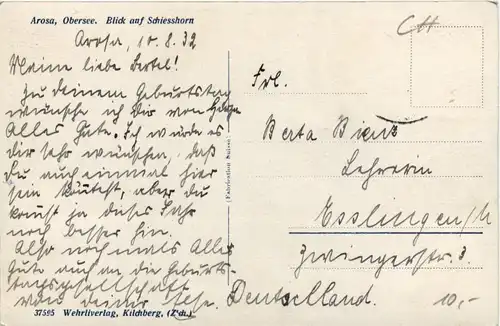 Arosa, Obersee. Blick auf Schiesshorn
Arosa, 10.8.32
Meine liebe Bertel!
Zu deinem Geburtstag
wünsche ich Dir von
Alles Gute. Ich würde es
dir sehr wünschen, daß
Du auch einmal hier
sein könntest, aber du
kommst ja dieses Jahr
noch besser hin.
Also nochmals Alles
Gute auch an die Geburts-
tagsgesellschaft
von deiner
37595 Wehrliverlag, Kilchberg, (Zch.)
(Fabrication Suisse)
Frl.
Berta
Lehrerin
Esslingen/N
Zwingerstr. 3
Deutschland.
10,-